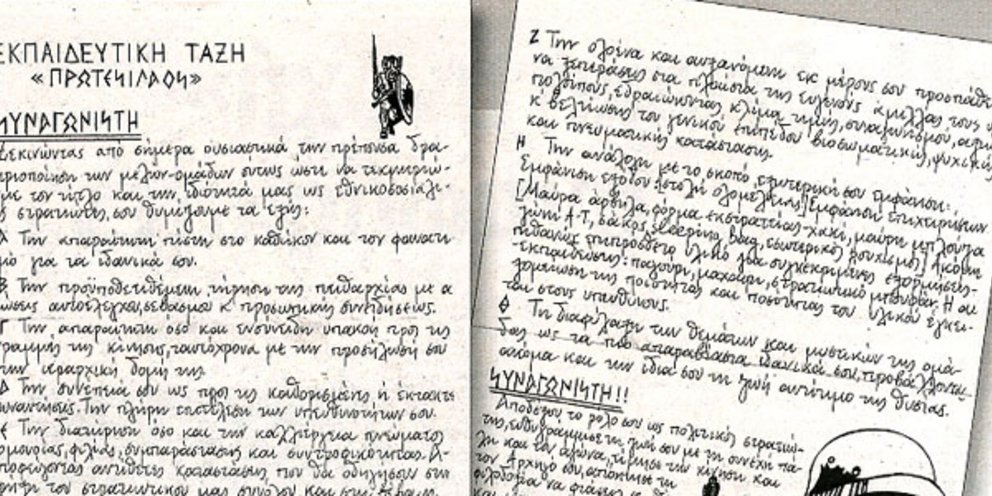 ΕΚΠΑΙΔΕΥΤΙΚΗ ΤΑΞΗ
«ΠΡΩΤΕΣΙΛΑΟΣ»
ΣΥΝΑΓΩΝΙΣΤΗ
Ξεκινώντας από σήμερα ουσιαστικά την πρέπουσα δρα-
των μελών-ομάδων ούτως ώστε να
με τον τίτλο και την ιδιότητά μας ως εθνικοσοσιαλι-
στρατιώτες, σου θυμίζουμε τα εξής:
Α Την απαραίτητη πίστη στο καθήκον και τον φανατι-
μό για τα ιδανικά σου.
Β Την προϋποτεθειμένη τήρηση της πειθαρχίας με α
αυτοελέγχου, σεβασμού κ' προσωπικής συνειδήσεως.
Γ Την απαραίτητη όσο και ενσυνείδητη υπακοή προς τις
γραμμές της κίνησης, ταυτόχρονα με την προσήλωσή σου
την ιεραρχική δομή της.
Δ Την συνέπειά σου ως προς τις καθορισμένες ή έκτακτες
συναντήσεις. Την πλήρη επιτέλεση των υπευθυνοτήτων σου.
Ε Την διατήρηση όσο και την καλλιέργεια πνεύματος
ομονοίας, φιλίας, συμπαράστασης και συντροφικότητας. Α-
ποφεύγοντας αντίθετες καταστάσεις που θα οδηγήσουν στη
του στρατιωτικού μας συνόλου και
Ζ Την ολοένα και αυξανόμενη εκ μέρους σου προσπάθεια
να ξεπεράσεις στα πλαίσια της ευγενούς άμιλλας τους
εδραιώνοντας κλίμα τιμής, συναγωνισμού,
κ' βελτίωσης του γενικού επιπέδου βιοσωματικής, ψυχικής
και πνευματικής κατάστασης.
Η Την ανάλογη με το σκοπό εξωτερική σου εμφάνιση:
Εμφάνιση εξόδου: [στολή ολομέλειας] Εμφάνιση επιχειρήσεων
[Μαύρα άρβυλα, φόρμα εκστρατείας-χακί, μαύρη μπλούζα
ζώνη Α-Τ, σάκος, sleeping bag, εσωτερικός ρουχισμός] Ακόμη
πιθανώς επιπρόσθετο υλικό για συγκεκριμένες εξορμήσεις-
εκπαιδεύσεις: παγούρι, μαχαίρι, στρατιωτικό μπουφάν. Η αξι-
της ποιότητας και ποσότητας του υλικού έγκει-
ται στους υπευθύνους.
Θ Τη διαφύλαξη των θεμάτων και μυστικών της ομά-
δας ως τα πιο απαραβίαστα ιδανικά σου, προβάλλοντα
ακόμα και την ίδια σου τη ζωή αντίτιμο της θυσίας.
ΣΥΝΑΓΩΝΙΣΤΗ!!
Αποδέξου το ρόλο σου ως πολιτικός στρατιώ-
της, ευθυγράμμισε τη ζωή σου με τη συνεχή πά-
λη και τον αγώνα, τίμησε την κίνηση και
τον Αρχηγό σου, απόκτησε τη
φιλοδοξία να φτάσεις